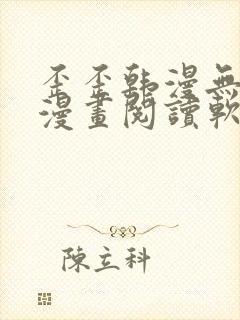 歪歪韩漫無
漫畫閱讀軟
陳立科